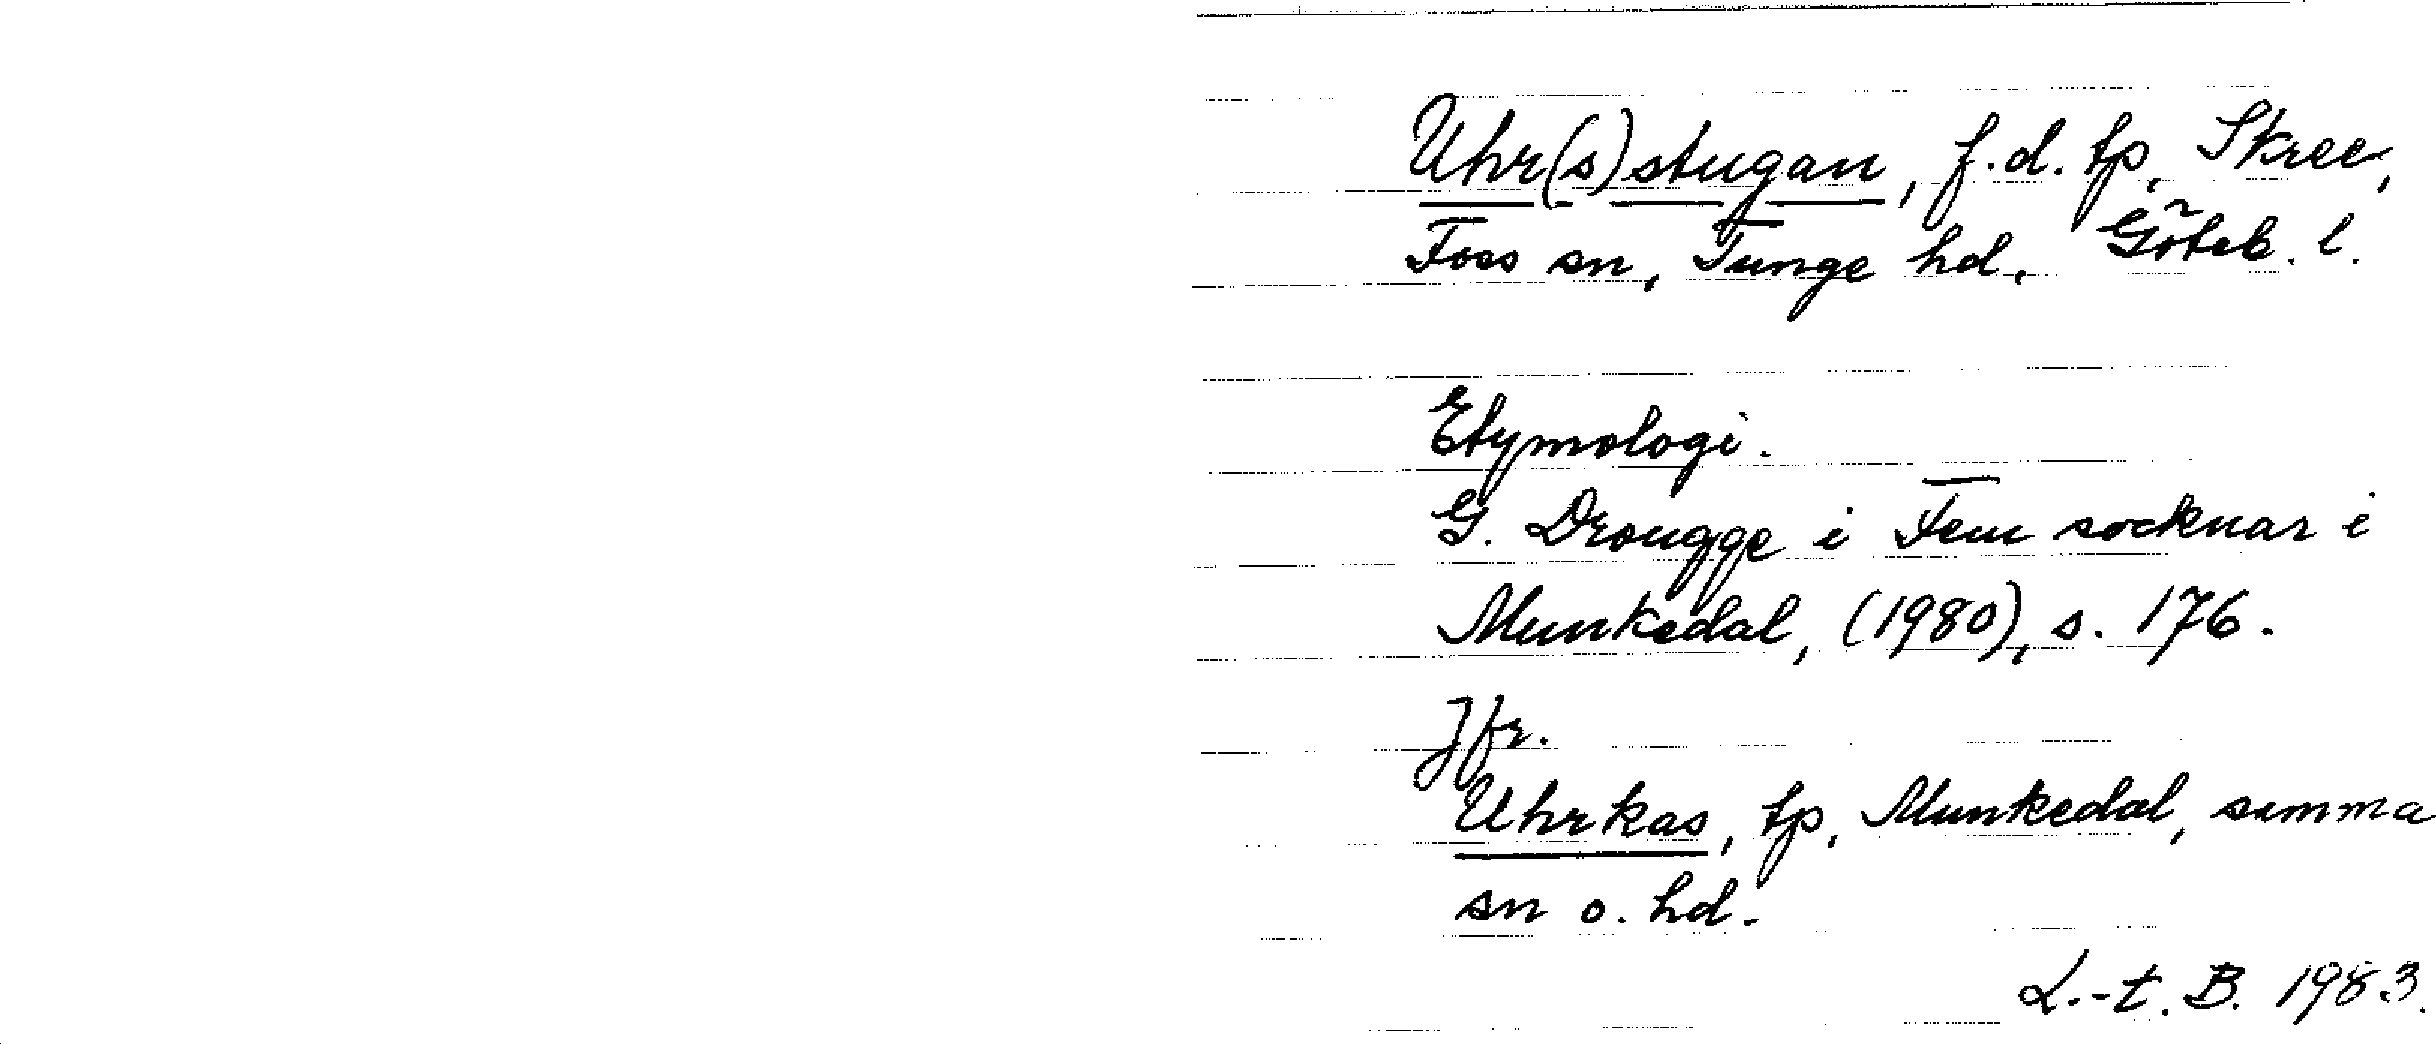 Uhr(s)stugan, f.d. tp, Skree,
Foss sn, Tunge hd, Göteb. l.
Etymologi.
G. Drougge i Fem socknar i
Munkedal, (1980), s. 176.
Jfr.
Uhrkas, tp, Munkedal, samma
sn o. hd.
L.-t. B. 1983.